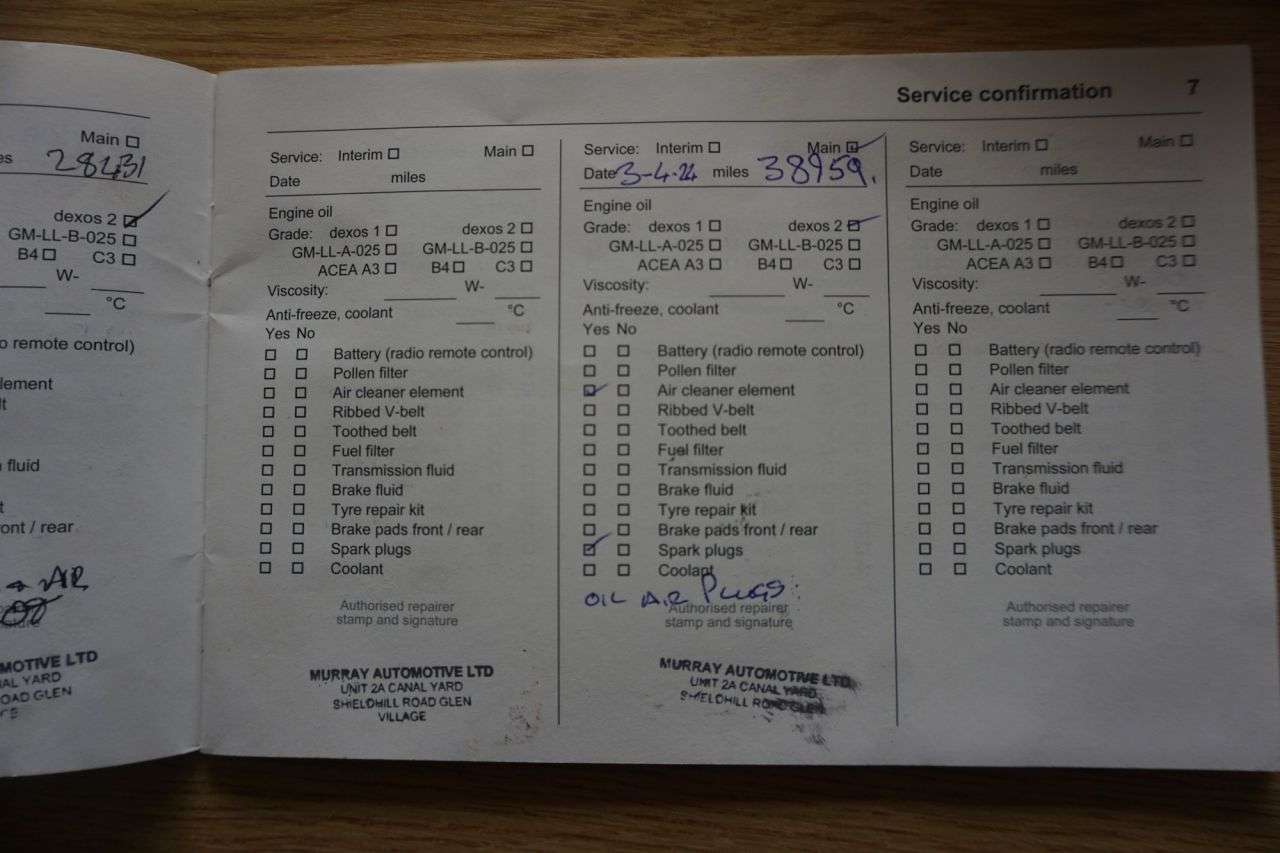 Main
es 28431
dexos 2
GM-LL-B-025
B4 C3
W-
°C
o remote control)
lement
t
fluid
t
ont / rear
+ AIR
MOTIVE LTD
AL YARD
OAD GLEN
Service confirmation 7
Service: Interim Main
Date miles
Engine oil
Grade: dexos 1 dexos 2
GM-LL-A-025 GM-LL-B-025
ACEA A3 B4 C3
Viscosity: W-
Anti-freeze, coolant °C
Yes No
Battery (radio remote control)
Pollen filter
Air cleaner element
Ribbed V-belt
Toothed belt
Fuel filter
Transmission fluid
Brake fluid
Tyre repair kit
Brake pads front / rear
Spark plugs
Coolant
Authorised repairer
stamp and signature
MURRAY AUTOMOTIVE LTD
UNIT 2A CANAL YARD
SHIELDHILL ROAD GLEN
VILLAGE
Service: Interim Main
Date 3-4-24 miles 38959.
Engine oil
Grade: dexos 1 dexos 2
GM-LL-A-025 GM-LL-B-025
ACEA A3 B4 C3
Viscosity: W-
Anti-freeze, coolant °C
Yes No
Battery (radio remote control)
Pollen filter
Air cleaner element
Ribbed V-belt
Toothed belt
Fuel filter
Transmission fluid
Brake fluid
Tyre repair kit
Brake pads front / rear
Spark plugs
Coolant
OIL AIR PLUGS
Authorised repairer
stamp and signature
MURRAY AUTOMOTIVE LTD
UNIT 2A CANAL YARD
SHIELDHILL ROAD GLEN
Service: Interim Main
Date miles
Engine oil
Grade: dexos 1 dexos 2
GM-LL-A-025 GM-LL-B-025
ACEA A3 B4 C3
Viscosity: W-
Anti-freeze, coolant °C
Yes No
Battery (radio remote control)
Pollen filter
Air cleaner element
Ribbed V-belt
Toothed belt
Fuel filter
Transmission fluid
Brake fluid
Tyre repair kit
Brake pads front / rear
Spark plugs
Coolant
Authorised repairer
stamp and signature